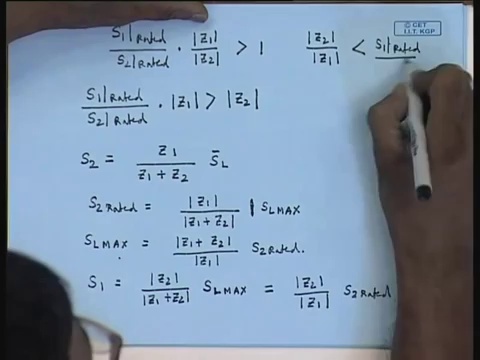 © CET
I.I.T. KGP
S1|Rated / S2|Rated · |Z1| / |Z2| > 1    |Z2| / |Z1| < S1|Rated
S1|Rated / S2|Rated · |Z1| > |Z2|
S2 = Z1 / (Z1 + Z2) S̄L
S2 Rated = |Z1| / |Z1 + Z2| | SLMAX
SLMAX = |Z1 + Z2| / |Z1| S2 Rated.
S1 = |Z2| / |Z1 + Z2| SLMAX = |Z2| / |Z1| S2 Rated